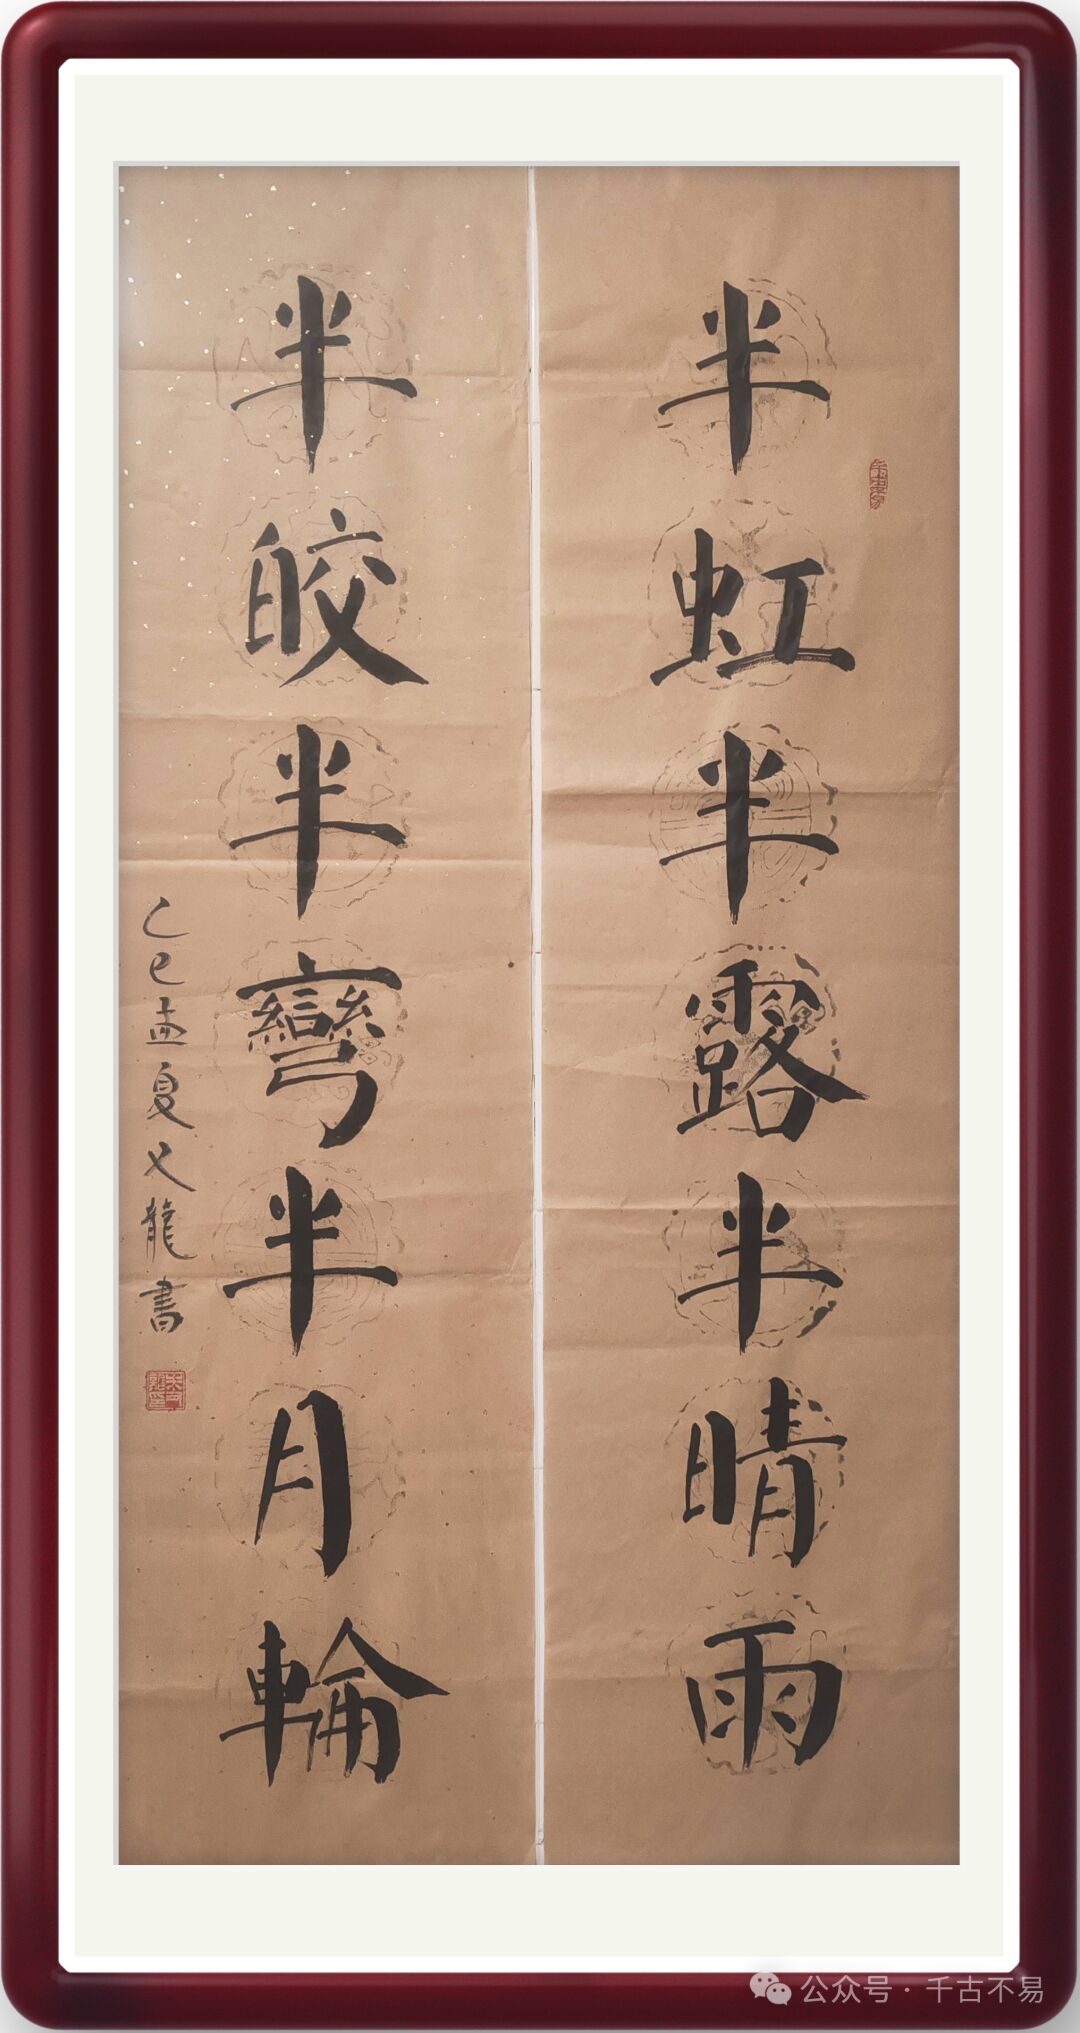 半虹半露半晴雨
半皎半彎半月輪
乙巳孟夏乂龍書
公众号·千古不易